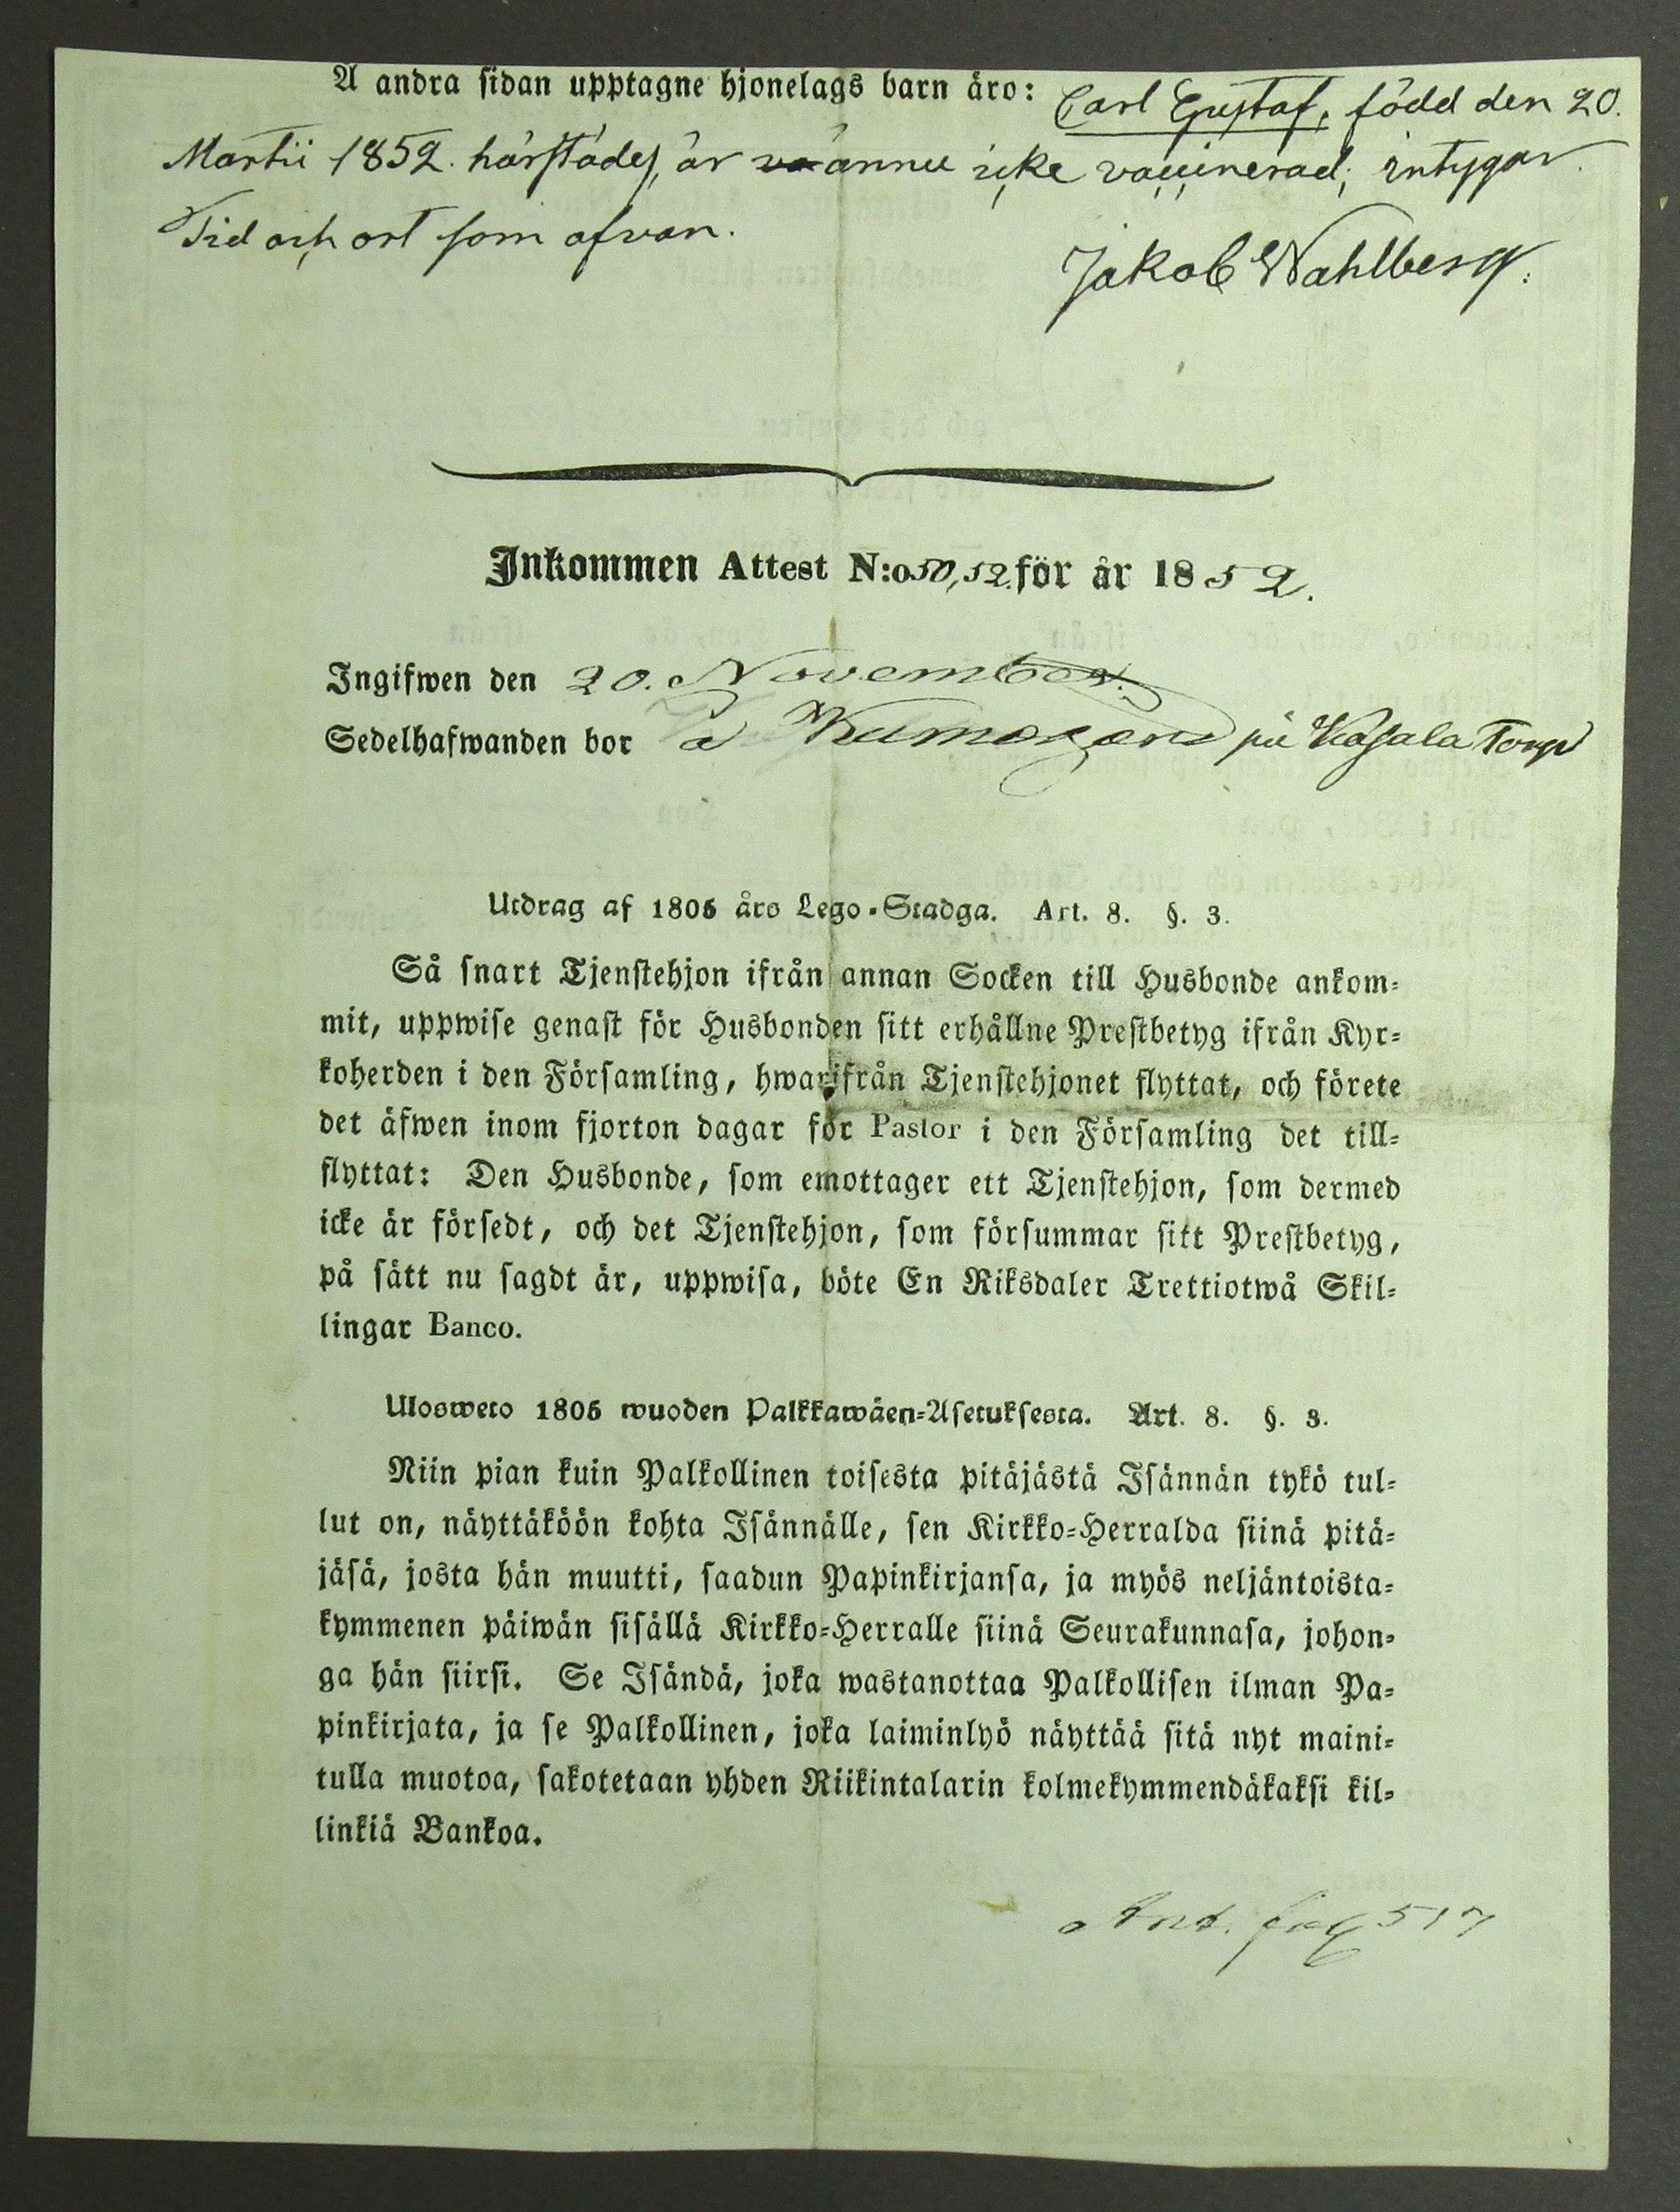 A andra sidan upptagne hjonelags barn äro: Carl Gustaf, född den 20.
Martii 1852. härstädes, är ännu icke vaccinerad; intygar
Tid och ort som ofvan.
Jakob Wahlberg.
Inkommen Attest N:o 50, 52. för år 1852.
Ingifwen den 20. November.
Sedelhafwanden bor å på Kasala Torp
Utdrag af 1805 års Lego-Stadga. Art. 8. §. 3.
Så snart Tjenstehjon ifrån annan Socken till Husbonde ankom-
mit, uppwise genast för Husbonden sitt erhållne Prestbetyg ifrån Kyr-
koherden i den Församling, hwarifrån Tjenstehjonet flyttat, och förete
det äfwen inom fjorton dagar för Pastor i den Församling det till-
flyttat: Den Husbonde, som emottager ett Tjenstehjon, som dermed
icke är försedt, och det Tjenstehjon, som försummar sitt Prestbetyg,
på sätt nu sagdt är, uppwisa, böte En Riksdaler Trettiotwå Skil-
lingar Banco.
Ulosweto 1805 wuoden Palkkawäen-Asetuksesta. Art. 8. §. 3.
Niin pian kuin Palkollinen toisesta pitäjästä Isännän tykö tul-
lut on, näyttäköön kohta Isännälle, sen Kirkko-Herralda siinä pitä-
jäsä, josta hän muutti, saadun Papinkirjansa, ja myös neljäntoista-
kymmenen päiwän sisällä Kirkko-Herralle siinä Seurakunnasa, johon-
ga hän siirsi. Se Isändä, joka wastanottaa Palkollisen ilman Pa-
pinkirjata, ja se Palkollinen, joka laiminlyö näyttää sitä nyt maini-
tulla muotoa, sakotetaan yhden Riikintalarin kolmekymmendäkaksi kil-
linkiä Bankoa.
Ant. pag 517